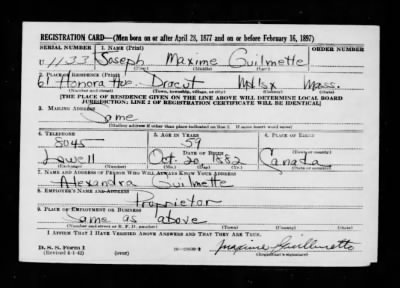 REGISTRATION CARD—(Men born on or after April 28, 1877 and on or before February 16, 1897)
SERIAL NUMBER 1. NAME (Print) ORDER NUMBER
U. 1133 Joseph Maxime Guilmette
(First) (Middle) (Last)
2. PLACE OF RESIDENCE (Print)
61 Honora Ave Dracut Mdlsx Mass.
(Number and street) (Town, township, village, or city) (County) (State)
[THE PLACE OF RESIDENCE GIVEN ON THE LINE ABOVE WILL DETERMINE LOCAL BOARD
JURISDICTION; LINE 2 OF REGISTRATION CERTIFICATE WILL BE IDENTICAL]
3. MAILING ADDRESS
Same
[Mailing address if other than place indicated on line 2. If same insert word same]
4. TELEPHONE 5. AGE IN YEARS 6. PLACE OF BIRTH
8045 59
DATE OF BIRTH (Town or county)
Lowell Oct. 20, 1882 Canada
(Exchange) (Number) (Mo.) (Day) (Yr.) (State or country)
7. NAME AND ADDRESS OF PERSON WHO WILL ALWAYS KNOW YOUR ADDRESS
Alexandra Guilmette
8. EMPLOYER'S NAME AND ADDRESS
Proprietor
9. PLACE OF EMPLOYMENT OR BUSINESS
Same as above
(Number and street or R. F. D. number) (Town) (County) (State)
I AFFIRM THAT I HAVE VERIFIED ABOVE ANSWERS AND THAT THEY ARE TRUE.
D. S. S. Form 1
(Revised 4-1-42) (over) Maxime Guillmette
(Registrant's signature)